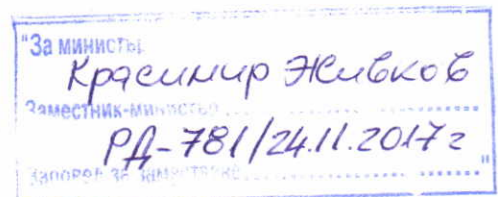 "За министъ
Красимир Живков
Заместник-министър ..............
РД-781/24.11.2017г
Заповед за заместване .............. "